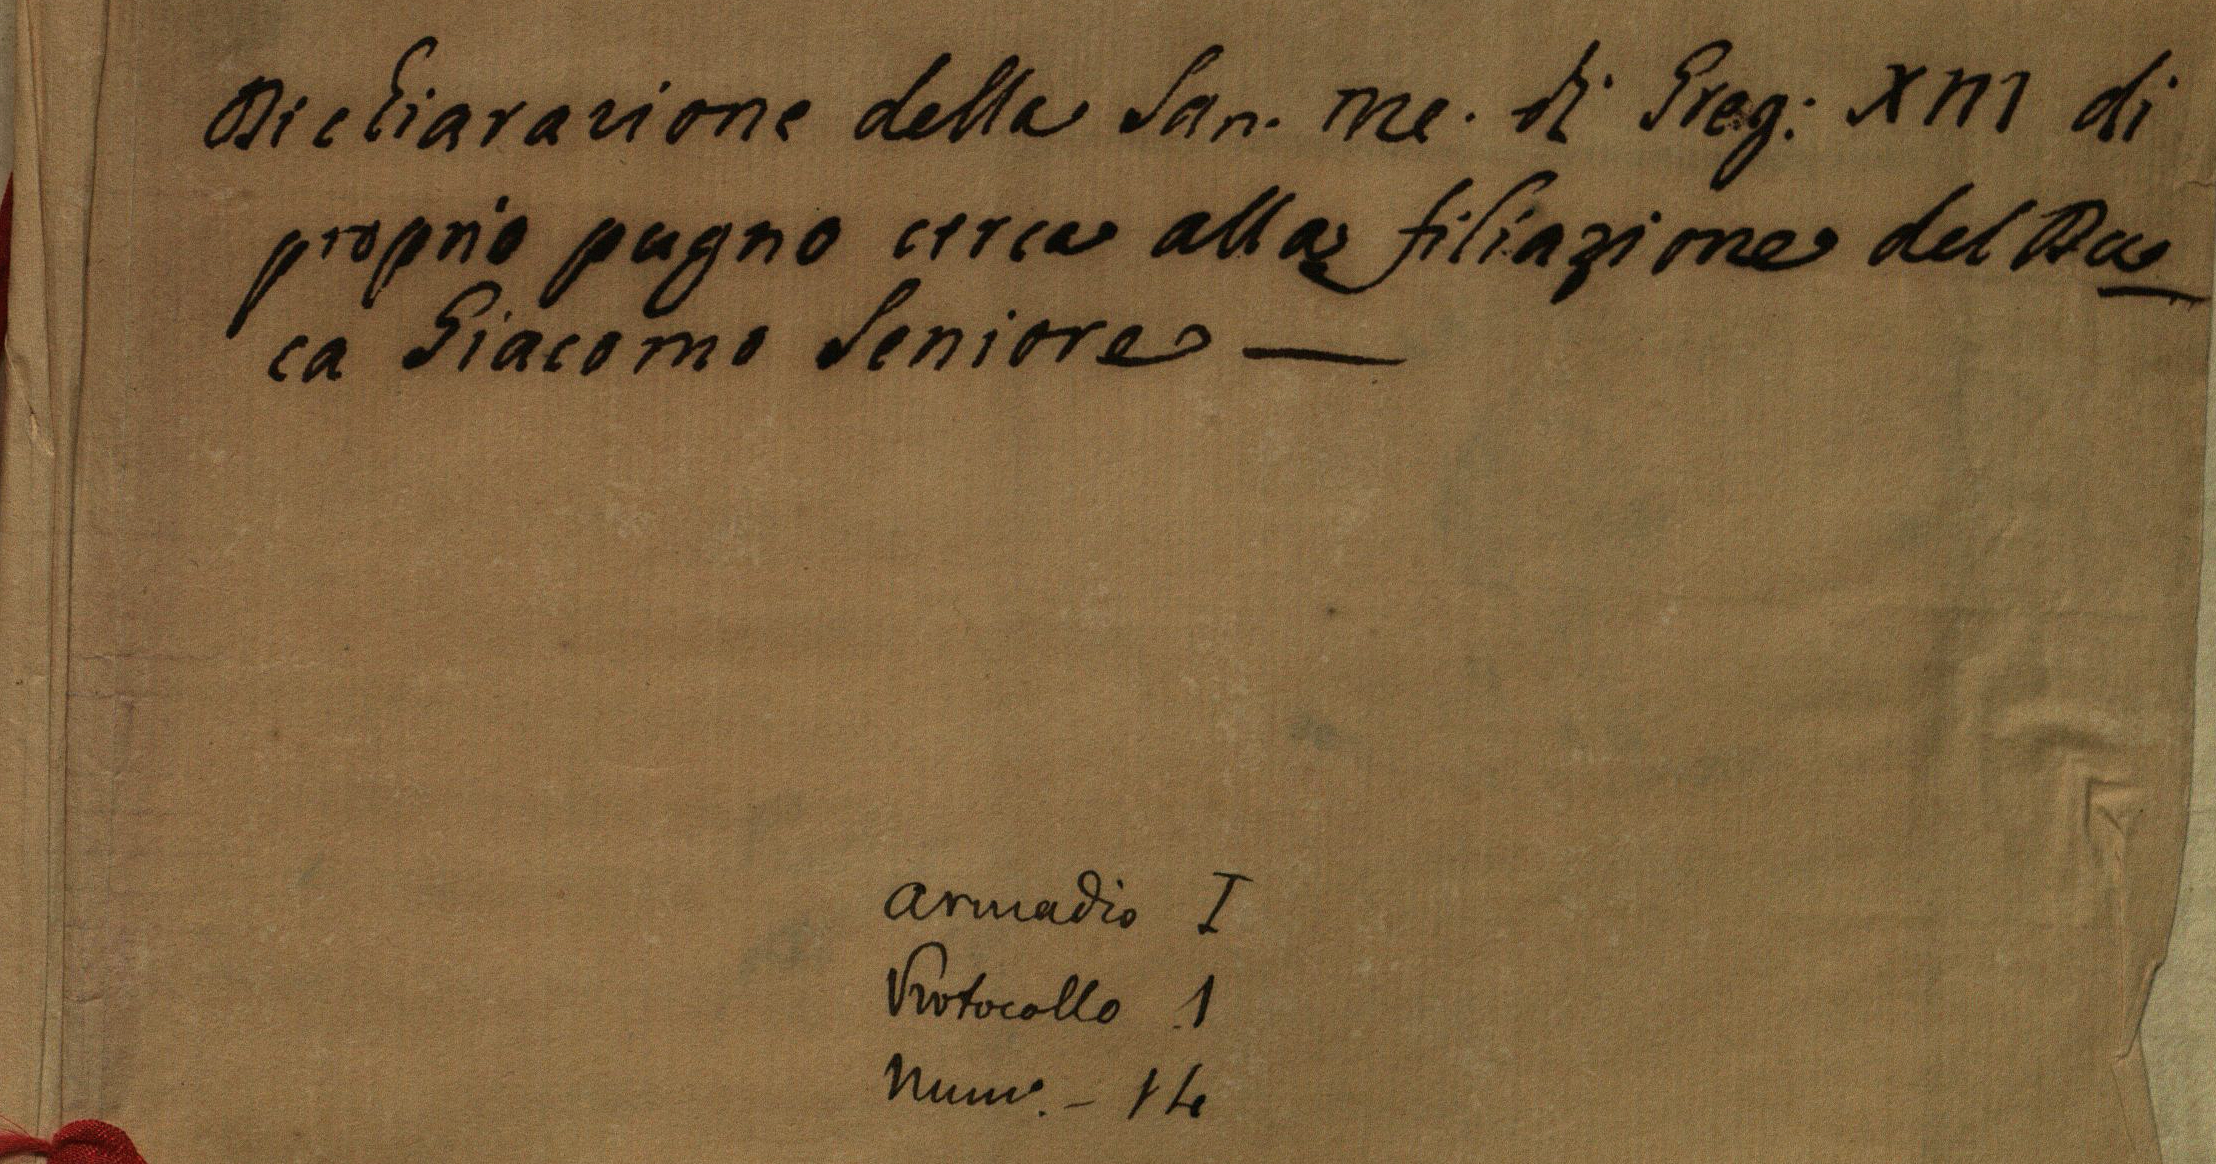 Dichiarazione della San. Me. di Greg: XIII di
proprio pugno cerca alla filiazione del Du
ca Giacomo Seniore —
Armadio I
Protocollo 1
Num. - 14